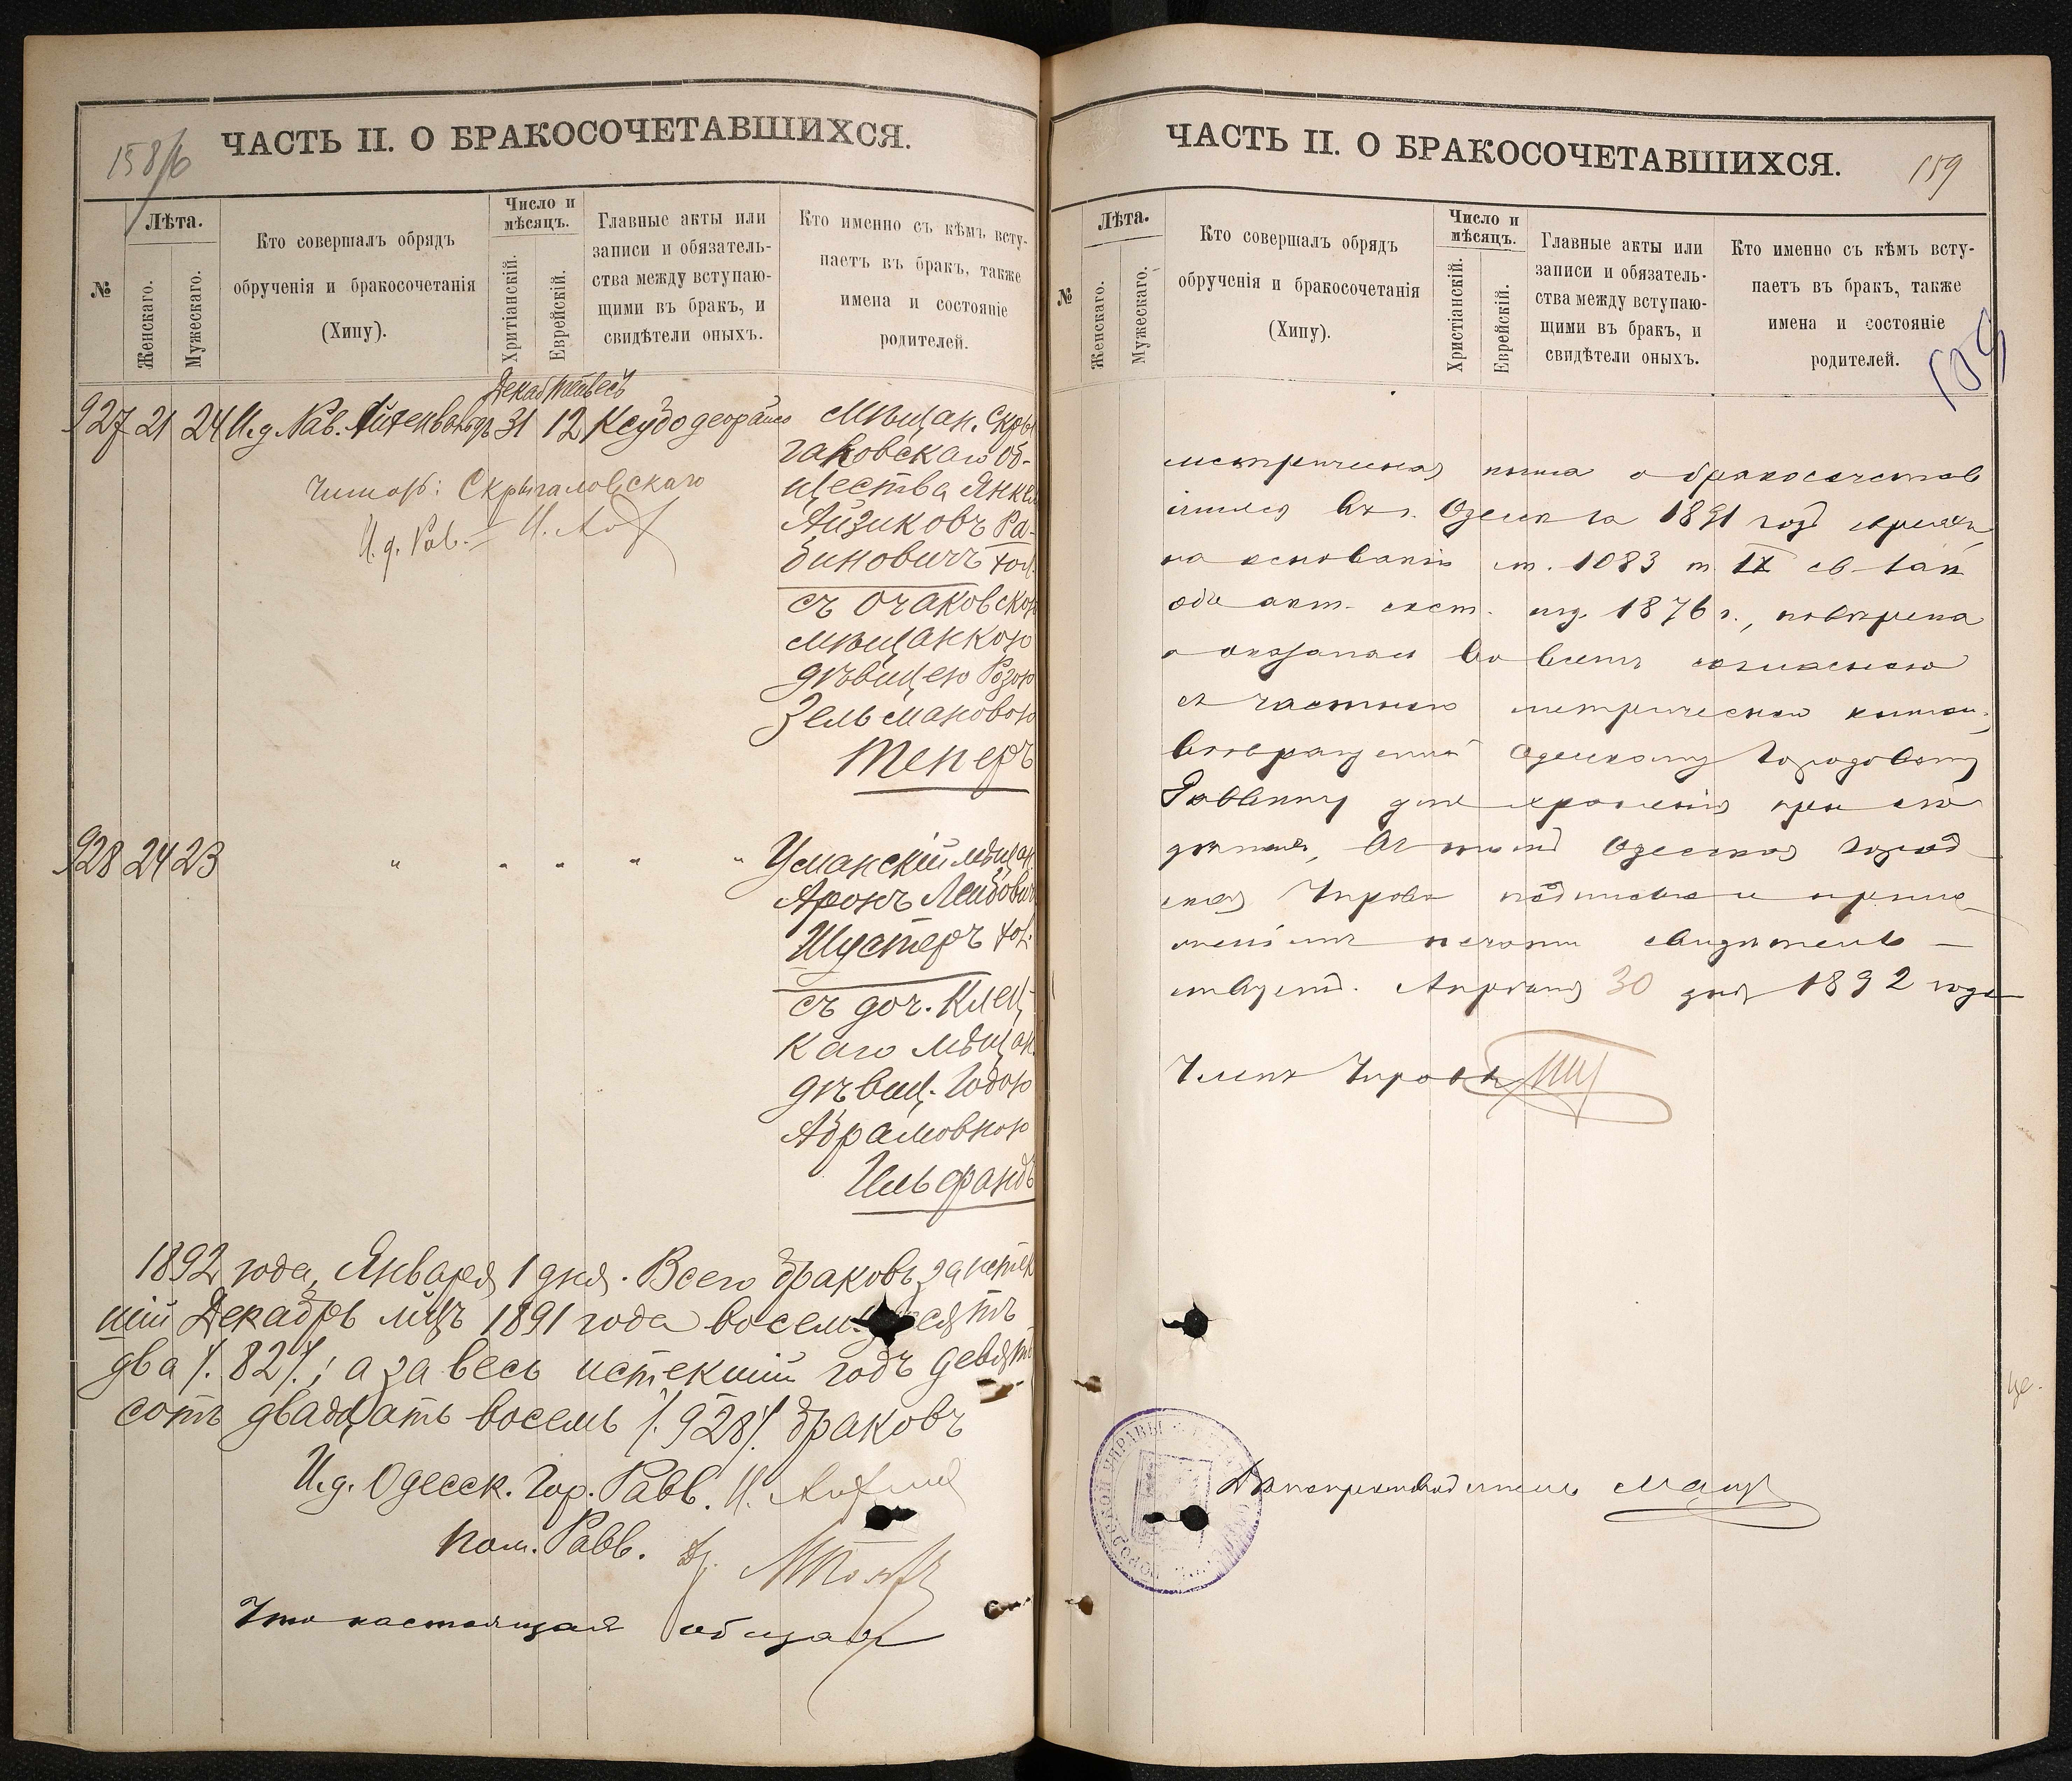 158/б
ЧАСТЬ II. О БРАКОСОЧЕТАВШИХСЯ.
№
Лѣта.
Женскаго.
Мужескаго.
Кто совершалъ обрядъ
обрученія и бракосочетанія
(Хипу).
Число и
мѣсяцъ.
Хритіанскій.
Еврейскій.
Главные акты или
записи и обязатель-
ства между вступаю-
щими въ бракъ, и
свидѣтели оныхъ.
Кто именно съ кѣмъ всту-
паетъ въ бракъ, также
имена и состояніе
родителей.
Декаб Тейвесъ
927 21 24 И.д. Рав. 31 12
Мѣщан. Скры
галовскаго об-
щества Янкел
Айзиковъ Ра-
биновичъ хол.
съ очаковскою
мѣщанкою
дѣвицею Розою
Зельмановою
Тенеръ
Скрыгаловскаго
И.д. Рав.
928 24 23 " " " " "
Уманскій мѣщан
Аронъ Лейбович
Шустеръ хол.
съ доч. Клец-
каго мѣщан
дѣвиц. Годою
Абрамовною
Гельфандъ
1892 года, Января 1 дня. Всего браковъ за истек
шій Декабрь мцъ 1891 года восемьдесятъ
два /. 82 /.; а за весь истекшій годъ девять
сотъ двадцать восемь /. 928 /. браковъ
И.д. Одесск. Гор. Равв.
Пом. Равв. Др.
Что настоящая общая
ЧАСТЬ II. О БРАКОСОЧЕТАВШИХСЯ.
159
№
Лѣта.
Женскаго.
Мужескаго.
Кто совершалъ обрядъ
обрученія и бракосочетанія
(Хипу).
Число и
мѣсяцъ.
Христіанскій.
Еврейскій.
Главные акты или
записи и обязатель-
ства между вступаю-
щими въ бракъ, и
свидѣтели оныхъ.
Кто именно съ кѣмъ всту-
паетъ въ бракъ, также
имена и состояніе
родителей.
159
метрическая книга о бракосочетав
шихся въ г. Одессѣ за 1891 годъ евреяхъ
на основаніи ст. 1083 т IX св. зак
объ акт. сост. изд. 1876 г., повѣрена
и оказалась во всемъ согласною
съ частною метрическою книгою,
возвращенной Одесскому Городовому
Раввину для храненія при его
дѣлахъ, въ чемъ Одесская Город-
ская Управа подписью и прило-
женіемъ печати свидѣтель-
ствуетъ. Апрѣля 30 дня 1892 года
Членъ Управы
Дѣлопроизводитель
ГОРОДСКОЙ УПРАВЫ